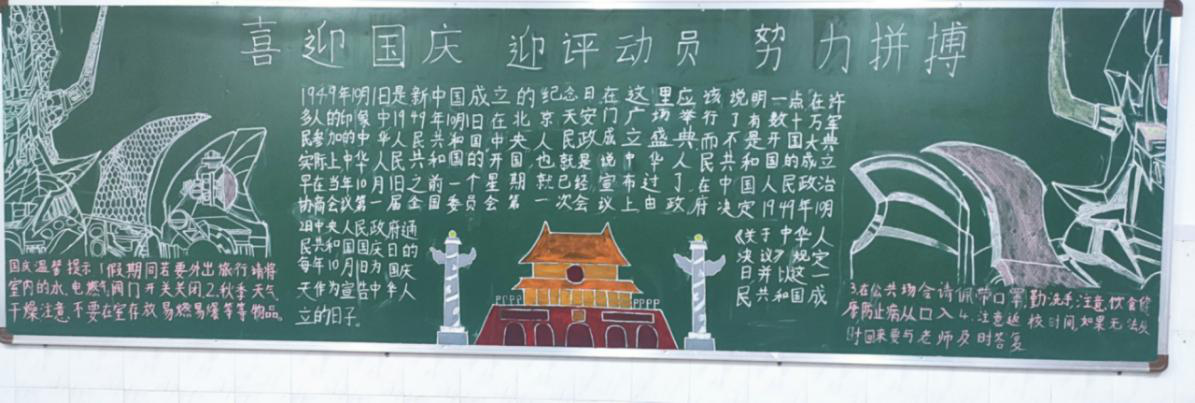 喜迎国庆 迎评动员 努力拼搏
1949年10月1日是新中国成立的纪念日在这里应该说明一点在许
多人的印象中1949年10月1日在北京天安门广场举行了有数十万军
民参加的中华人民共和国中央人民政成立盛典而不是开国大典
实际上中华人民共和国的开国也就是说中华人民共和国的成立
早在当年10月1日之前一个星期就已经宣布过了在中国人民政治
协商会议第一届全国委员会第一次会议上由政府决定1949年10月
中央人民政府通
民共和国国庆日的
每年10月1日为国庆
天作为宣告中华人
立的日子。
《关于中华人
决议》规定
日并以这一
民共和国成
国庆温馨提示1假期间若要外出旅行请将
室内的水.电燃气阀门开关关闭2.秋季天气
干燥注意.不要在室存放易燃易爆等等物品。
3.在公共场合请佩带口罩.勤洗手.注意饮食
摩防止病从口入4.注意返校时间.如果无法及
时回来要与老师及时答复